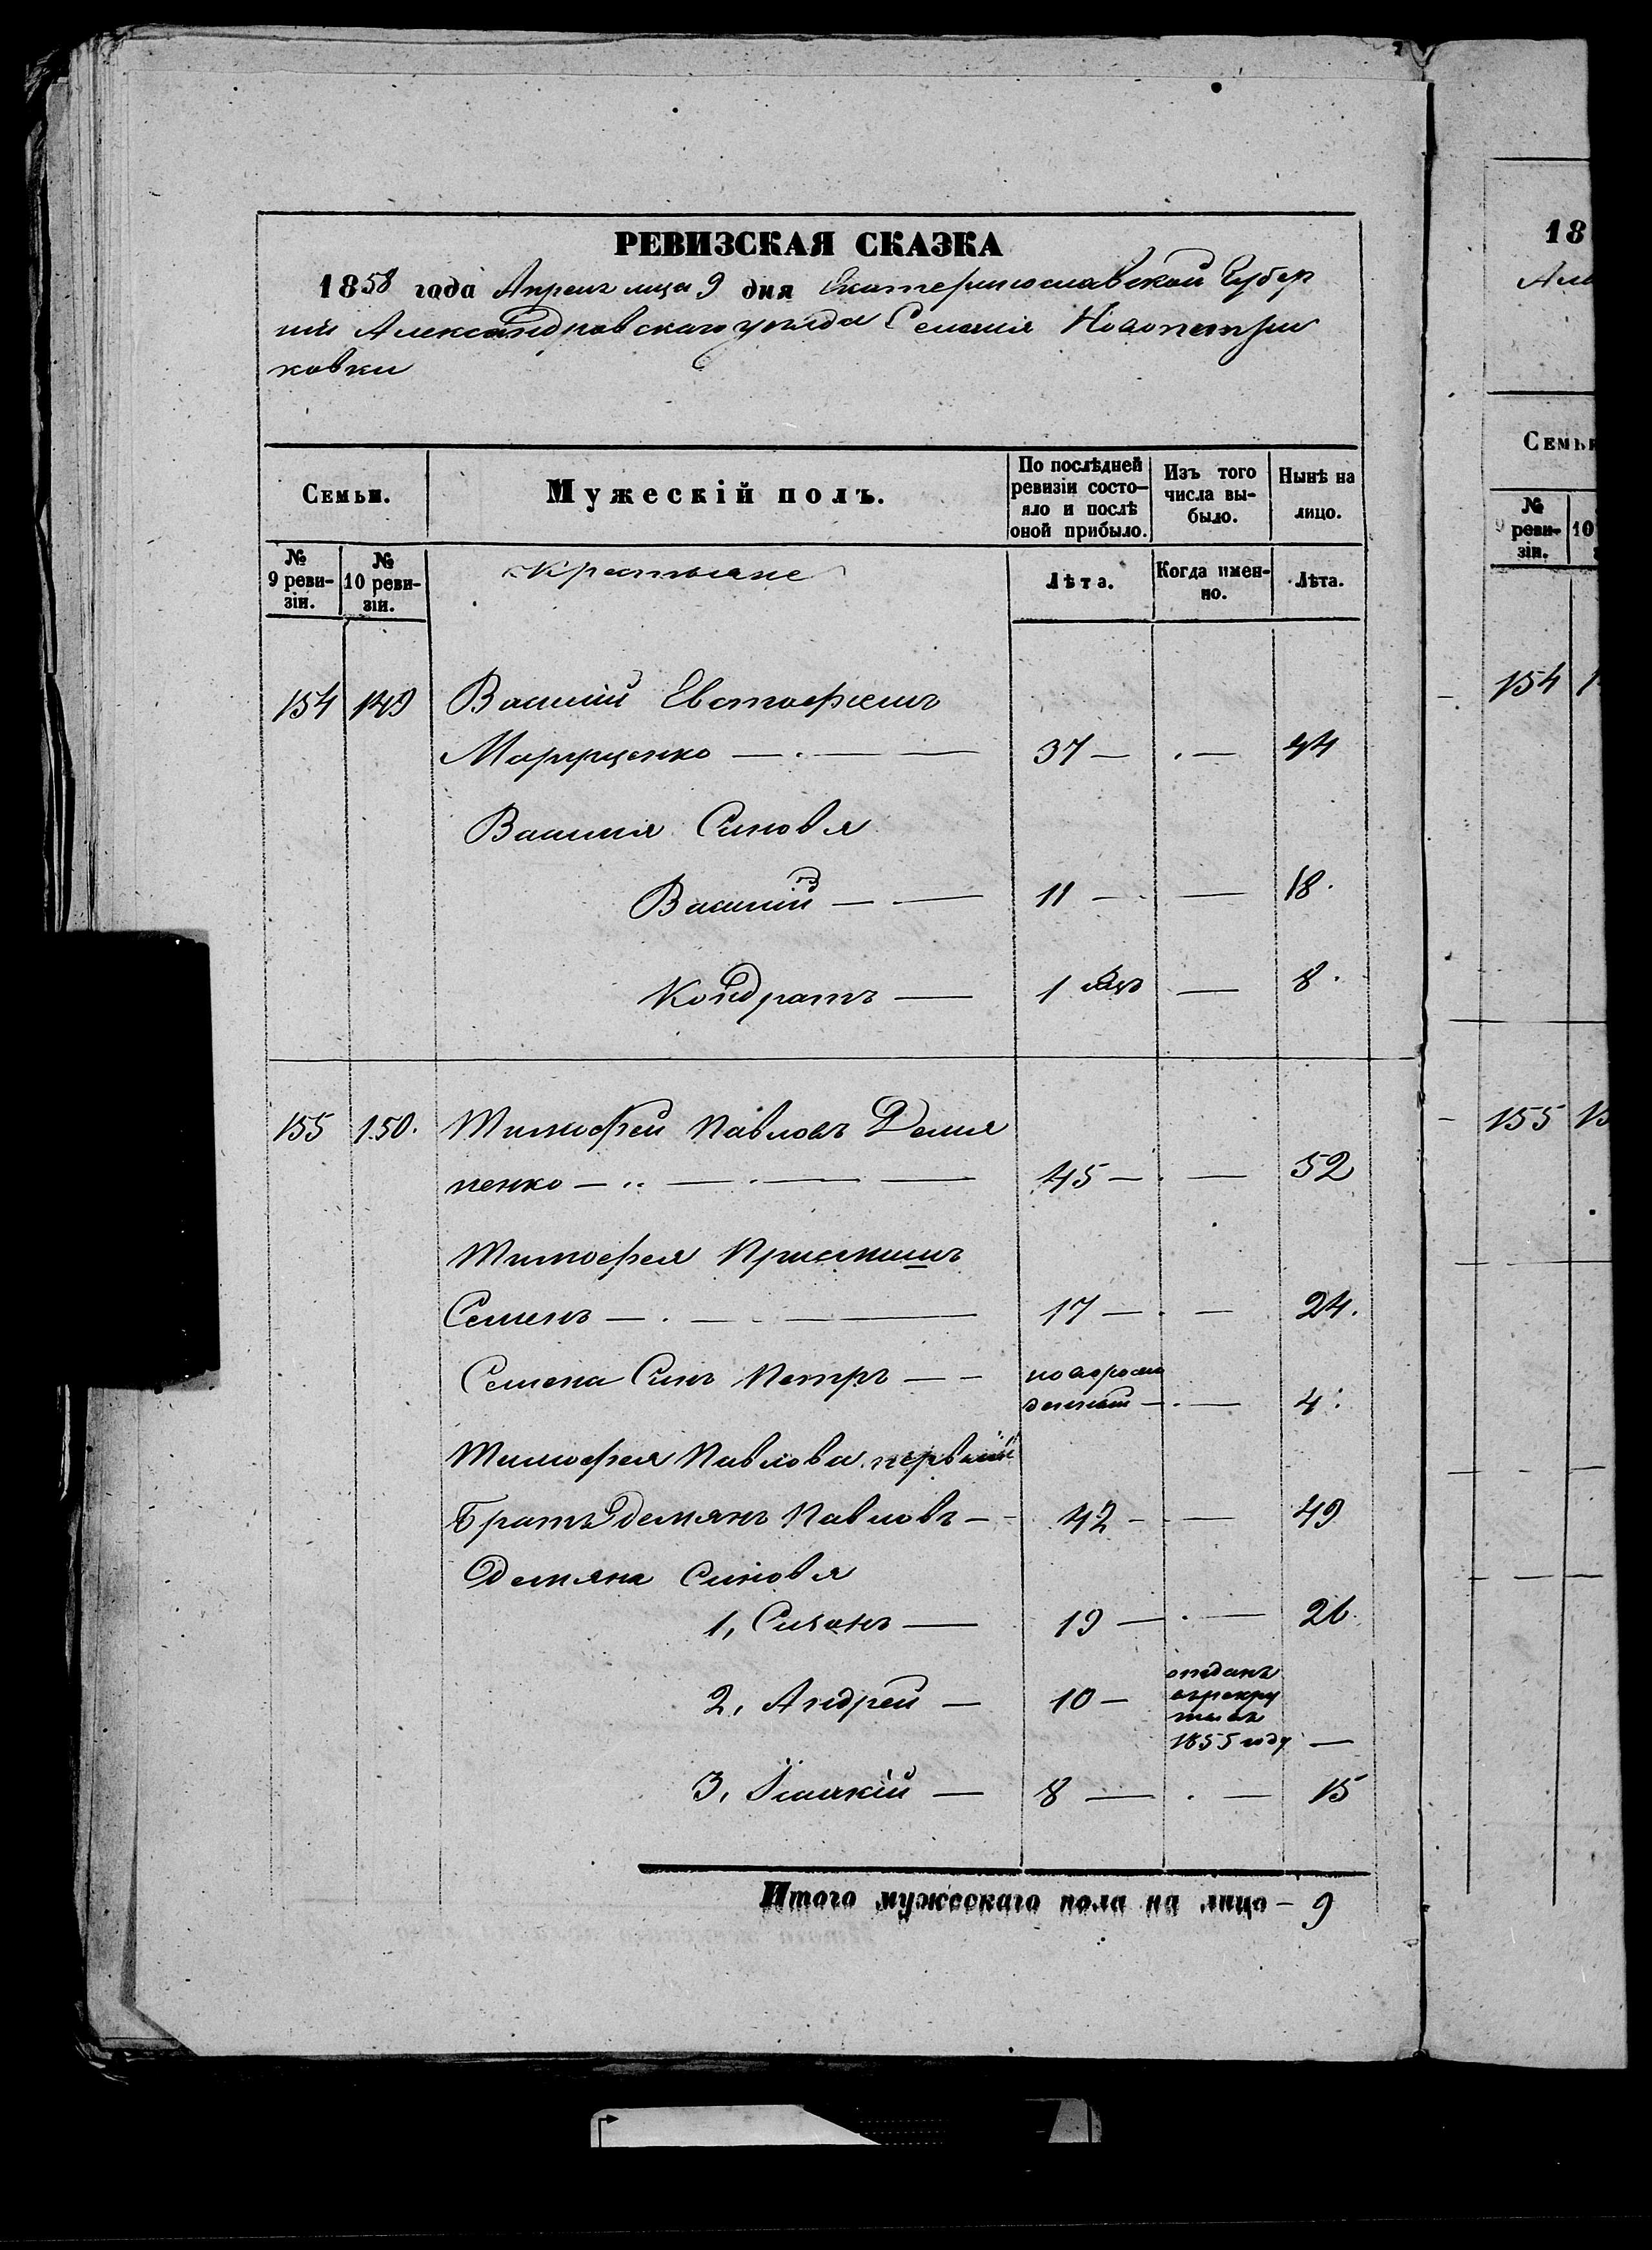 РЕВИЗСКАЯ СКАЗКА
1858 года Апреля мца 9 дня Екатеринославской Губер
ніи Александровскаго уезда Селенія Новопетри
ковки
Семьи.
Мужескій полъ.
По послѣдней ревизіи состо-
яло и послѣ оной прибыло.
Изъ того числа вы-
было.
Ныне на лицо.
№ 9 реви-
зіи.
№ 10 реви-
зіи.
Крестьяне
Лѣта.
Когда имен-
но.
Лѣта.
154 149 Василий Евстафиевъ
Марущенко — . — — 37 — . — 44
Василия Синовя
Василій — — 11 — — 18.
Кондратъ — 1 — 8.
155 150. Тимофей Павловъ Демя
ненко — .. — . — — 45 — . — 52
Тимофея
Семенъ — . — . — — 17 — . — 24.
Семена Синъ Петръ — — новорож
денный — . — 4.
Тимофея Павлова первый
Братъ Демянъ Павловъ — 42 — . — 49
Демяна Синовя
1, — 19 — . — 26
2, Андрей — 10 — отданъ
врекру
ты въ
1855 году —
3, — 8 — . — 15
Итого мужескаго пола на лицо — 9
18
Семьи
№ 9 реви-
зіи.
10
154 1
155 15